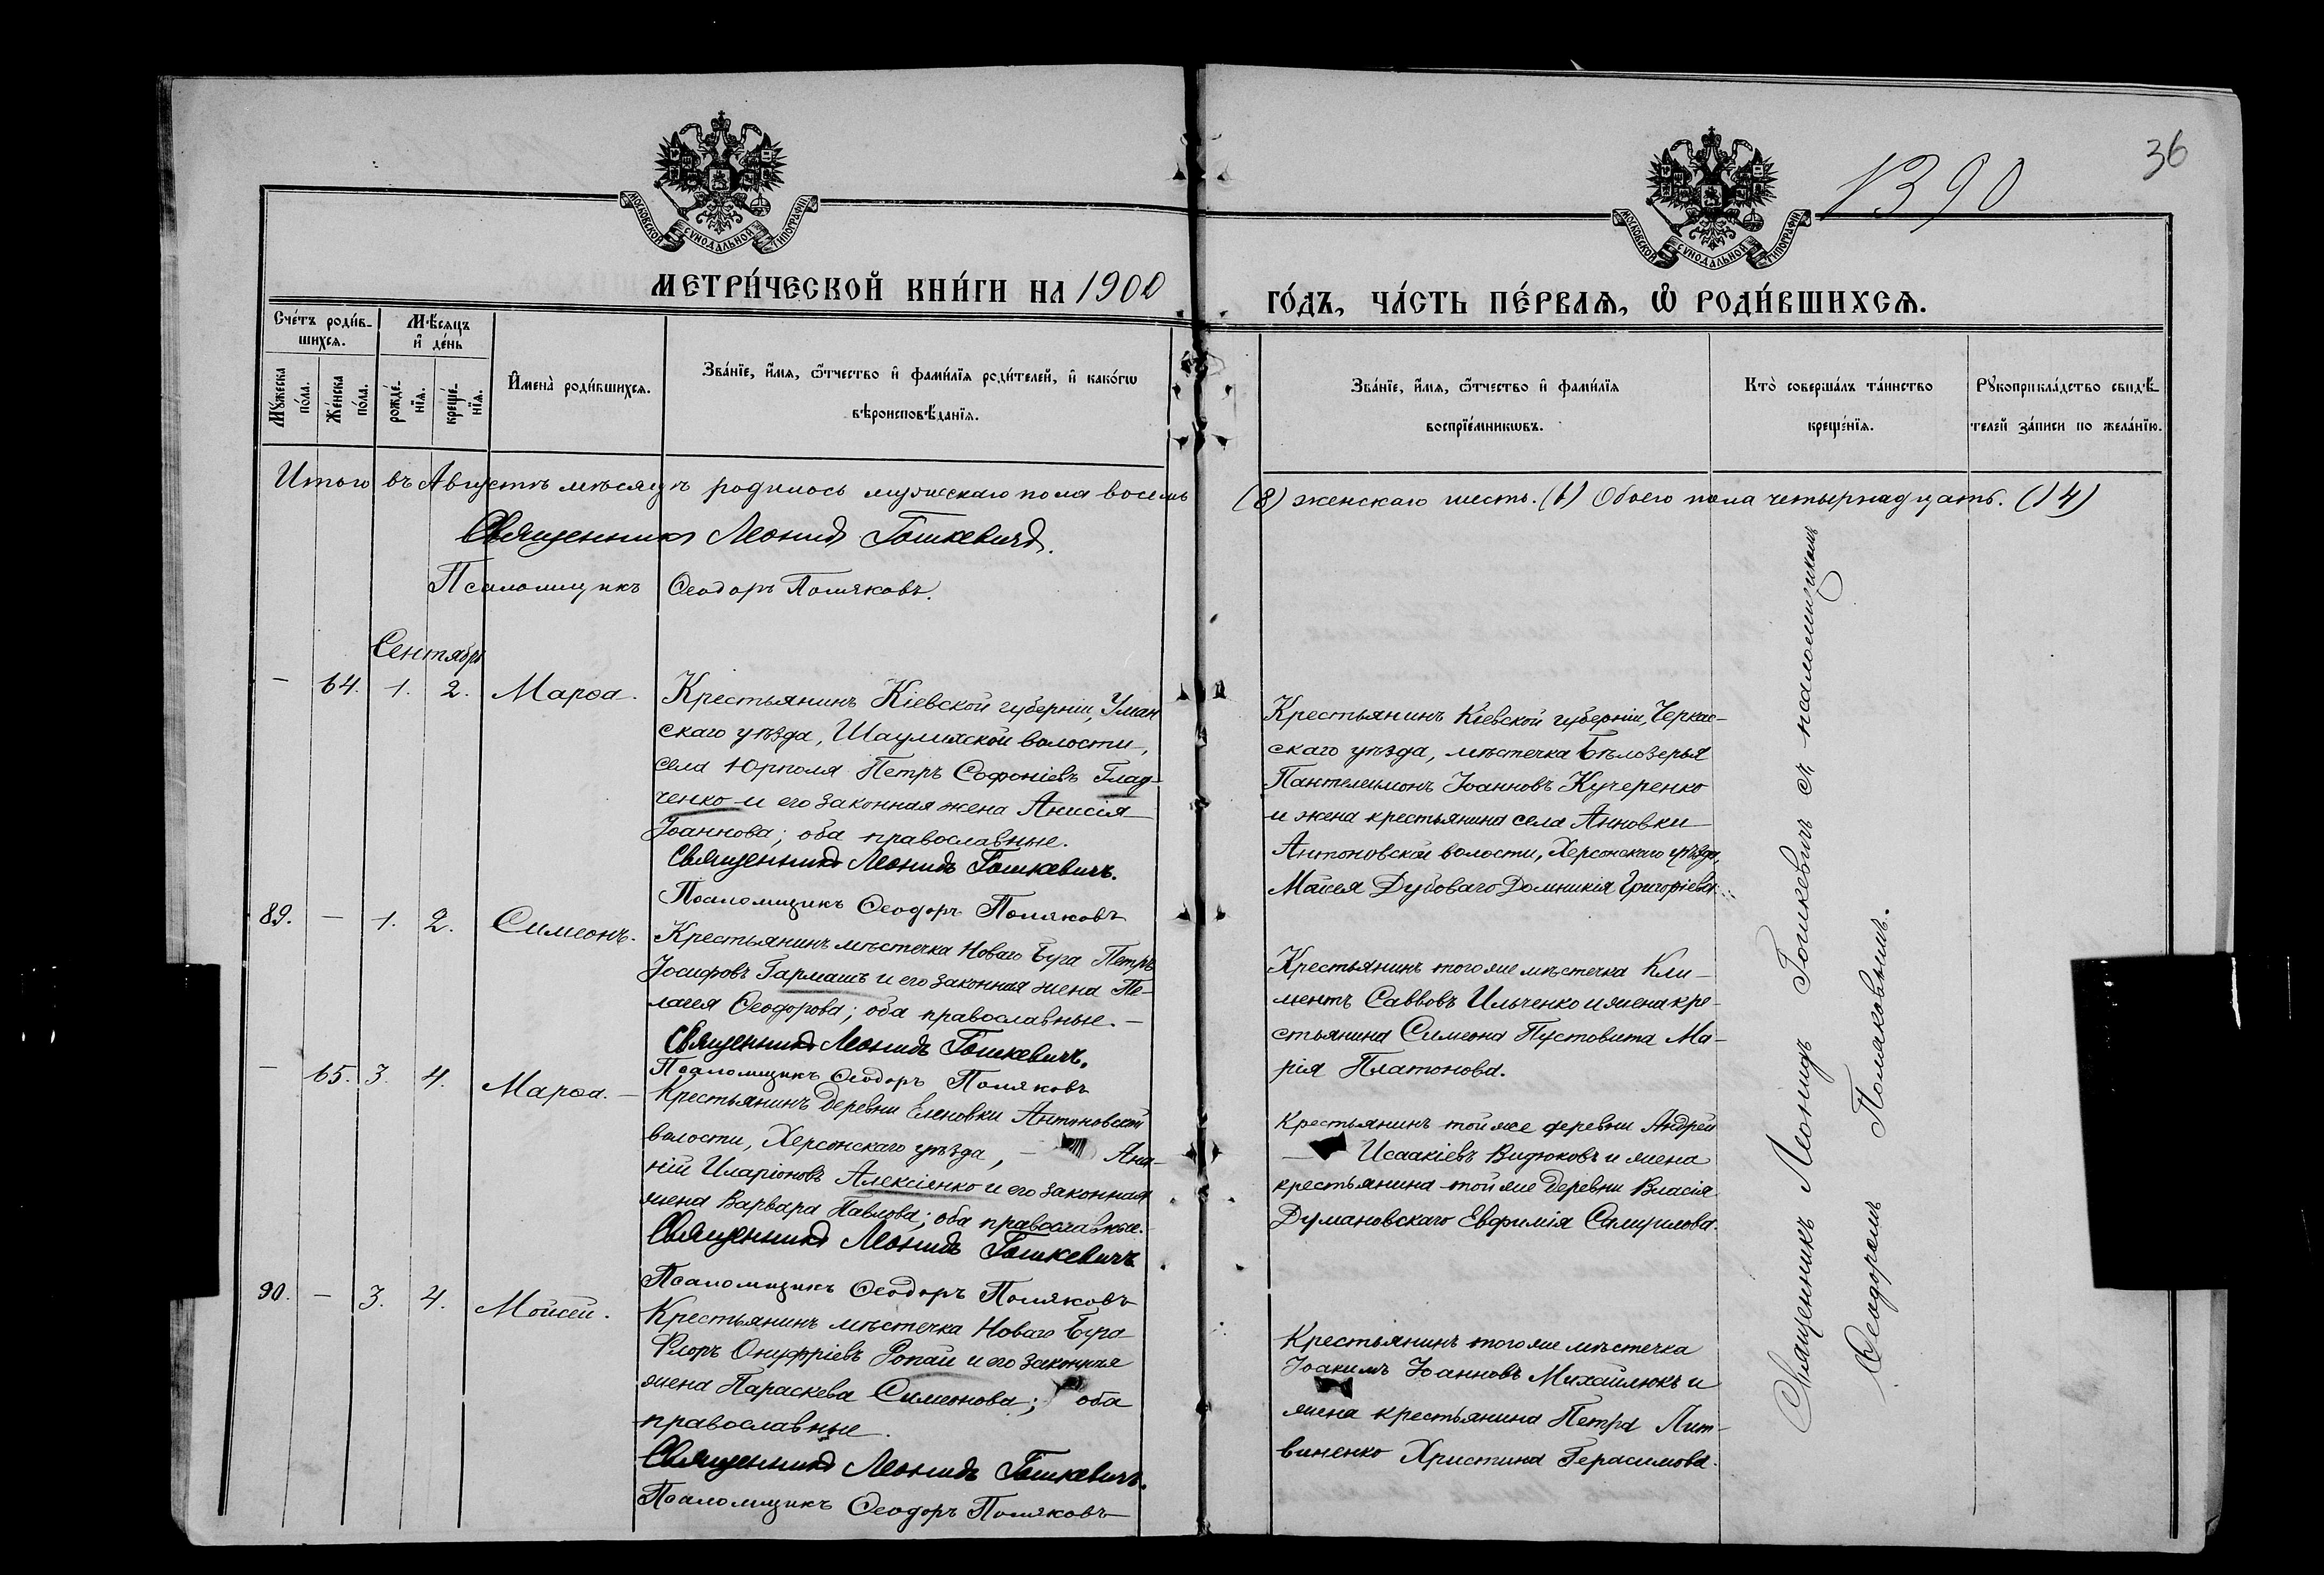 36
1390
МОСКОВСКОЙ СѴНОДАЛЬНОЙ ТИПОГРАФІИ
МОСКОВСКОЙ СѴНОДАЛЬНОЙ ТИПОГРАФІИ
МЕТРИ́ЧЕСКОЙ КНИ́ГИ НА 1900
ГО́ДЪ, ЧА́СТЬ ПЕ́РВАѦ, Ѡ҆ РОДИ́ВШИХСѦ.
Сче́тъ роди́в-
шихсѧ.
Мѣ́сѧцъ
и҆ де́нь
Мꙋ́жеска
по́ла.
Же́нска
по́ла.
рожде́-
нїѧ.
креще́-
нїѧ.
И҆мена̀ роди́вшихсѧ.
Зва́нїе, и҆́мѧ, ѻ҆́тчество и҆ фами́лїѧ роди́телей, и҆ како́гѡ
вѣроисповѣ́данїѧ.
Зва́нїе, и҆́мѧ, ѻ҆́тчество и҆ фами́лїѧ
воспрїе́мникѡвъ.
Кто̀ соверша́лъ та́инство
креще́нїѧ.
Рꙋкоприкла́дство свидѣ́-
телей за́писи по жела́нїю.
Итого въ Августѣ мѣсяцѣ родилось мужескаго пола восемь (8) женскаго шесть. (6) Обоего пола четырнадцать. (14)
Священникъ Леонид Гошкевичъ.
Псаломщикъ Ѳеодоръ Поляковъ.
Сентябрь
— 64. 1. 2. Марѳа.
Крестьянинъ Кіевской губерніи, Уман
скаго уѣзда, Шаулихской волости,
села Юрполя Петръ Софоніевъ Глад-
ченко и его законная жена Анисія
Іоаннова; оба православные.
Священникъ Леонидъ Гошкевичъ.
Псаломщикъ Ѳеодоръ Поляковъ
Крестьянинъ Кіевской губерніи, Черкас-
скаго уѣзда, мѣстечка Бѣлозерья
Пантелеимонъ Іоанновъ Кучеренко
и жена крестьянина села Анновки
Антоновской волости, Херсонскаго уѣзда,
Моисея Дубоваго Домникія Григоріева
89. — 1. 2. Симеонъ.
Крестьянинъ мѣстечка Новаго Буга Петръ
Іосифовъ Гармашъ и его законная жена Пе-
лагея Ѳеодорова; оба православные. —
Священникъ Леонидъ Гошкевичъ.
Псаломщикъ Ѳеодоръ Поляковъ
Крестьянинъ того же мѣстечка Кли-
ментъ Саввовъ Ильченко и жена кре-
стьянина Симеона Пустовита Ма-
рія Платонова.
— 65. 3. 4. Марѳа. —
Крестьянинъ деревни Еленовки Антоновской
волости, Херсонскаго уѣзда, — Ана-
ній Иларіоновъ Алексіенко и его законная
жена Варвара Павлова; оба православные.
Священникъ Леонидъ Гошкевичъ
Псаломщикъ Ѳеодоръ Поляковъ
Крестьянинъ той же деревни Андрей
— Исаакіевъ Видюковъ и жена
крестьянина той же деревни Власія
Думановскаго Евфимія Самуилова.
90. — 3. 4. Моисей.
Крестьянинъ мѣстечка Новаго Буга
Флоръ Онуфріевъ Ропай и его законная
жена Параскева Симеонова; оба
православные.
Священникъ Леонидъ Гошкевичъ.
Псаломщикъ Ѳеодоръ Поляковъ
Крестьянинъ того же мѣстечка
Іоакимъ Іоанновъ Михайлюкъ и
жена крестьянина Петра Лит-
виненко Христина Герасимова.
Священникъ Леонидъ Гошкевичъ съ псаломщикомъ
Ѳеодоромъ Поляковымъ.